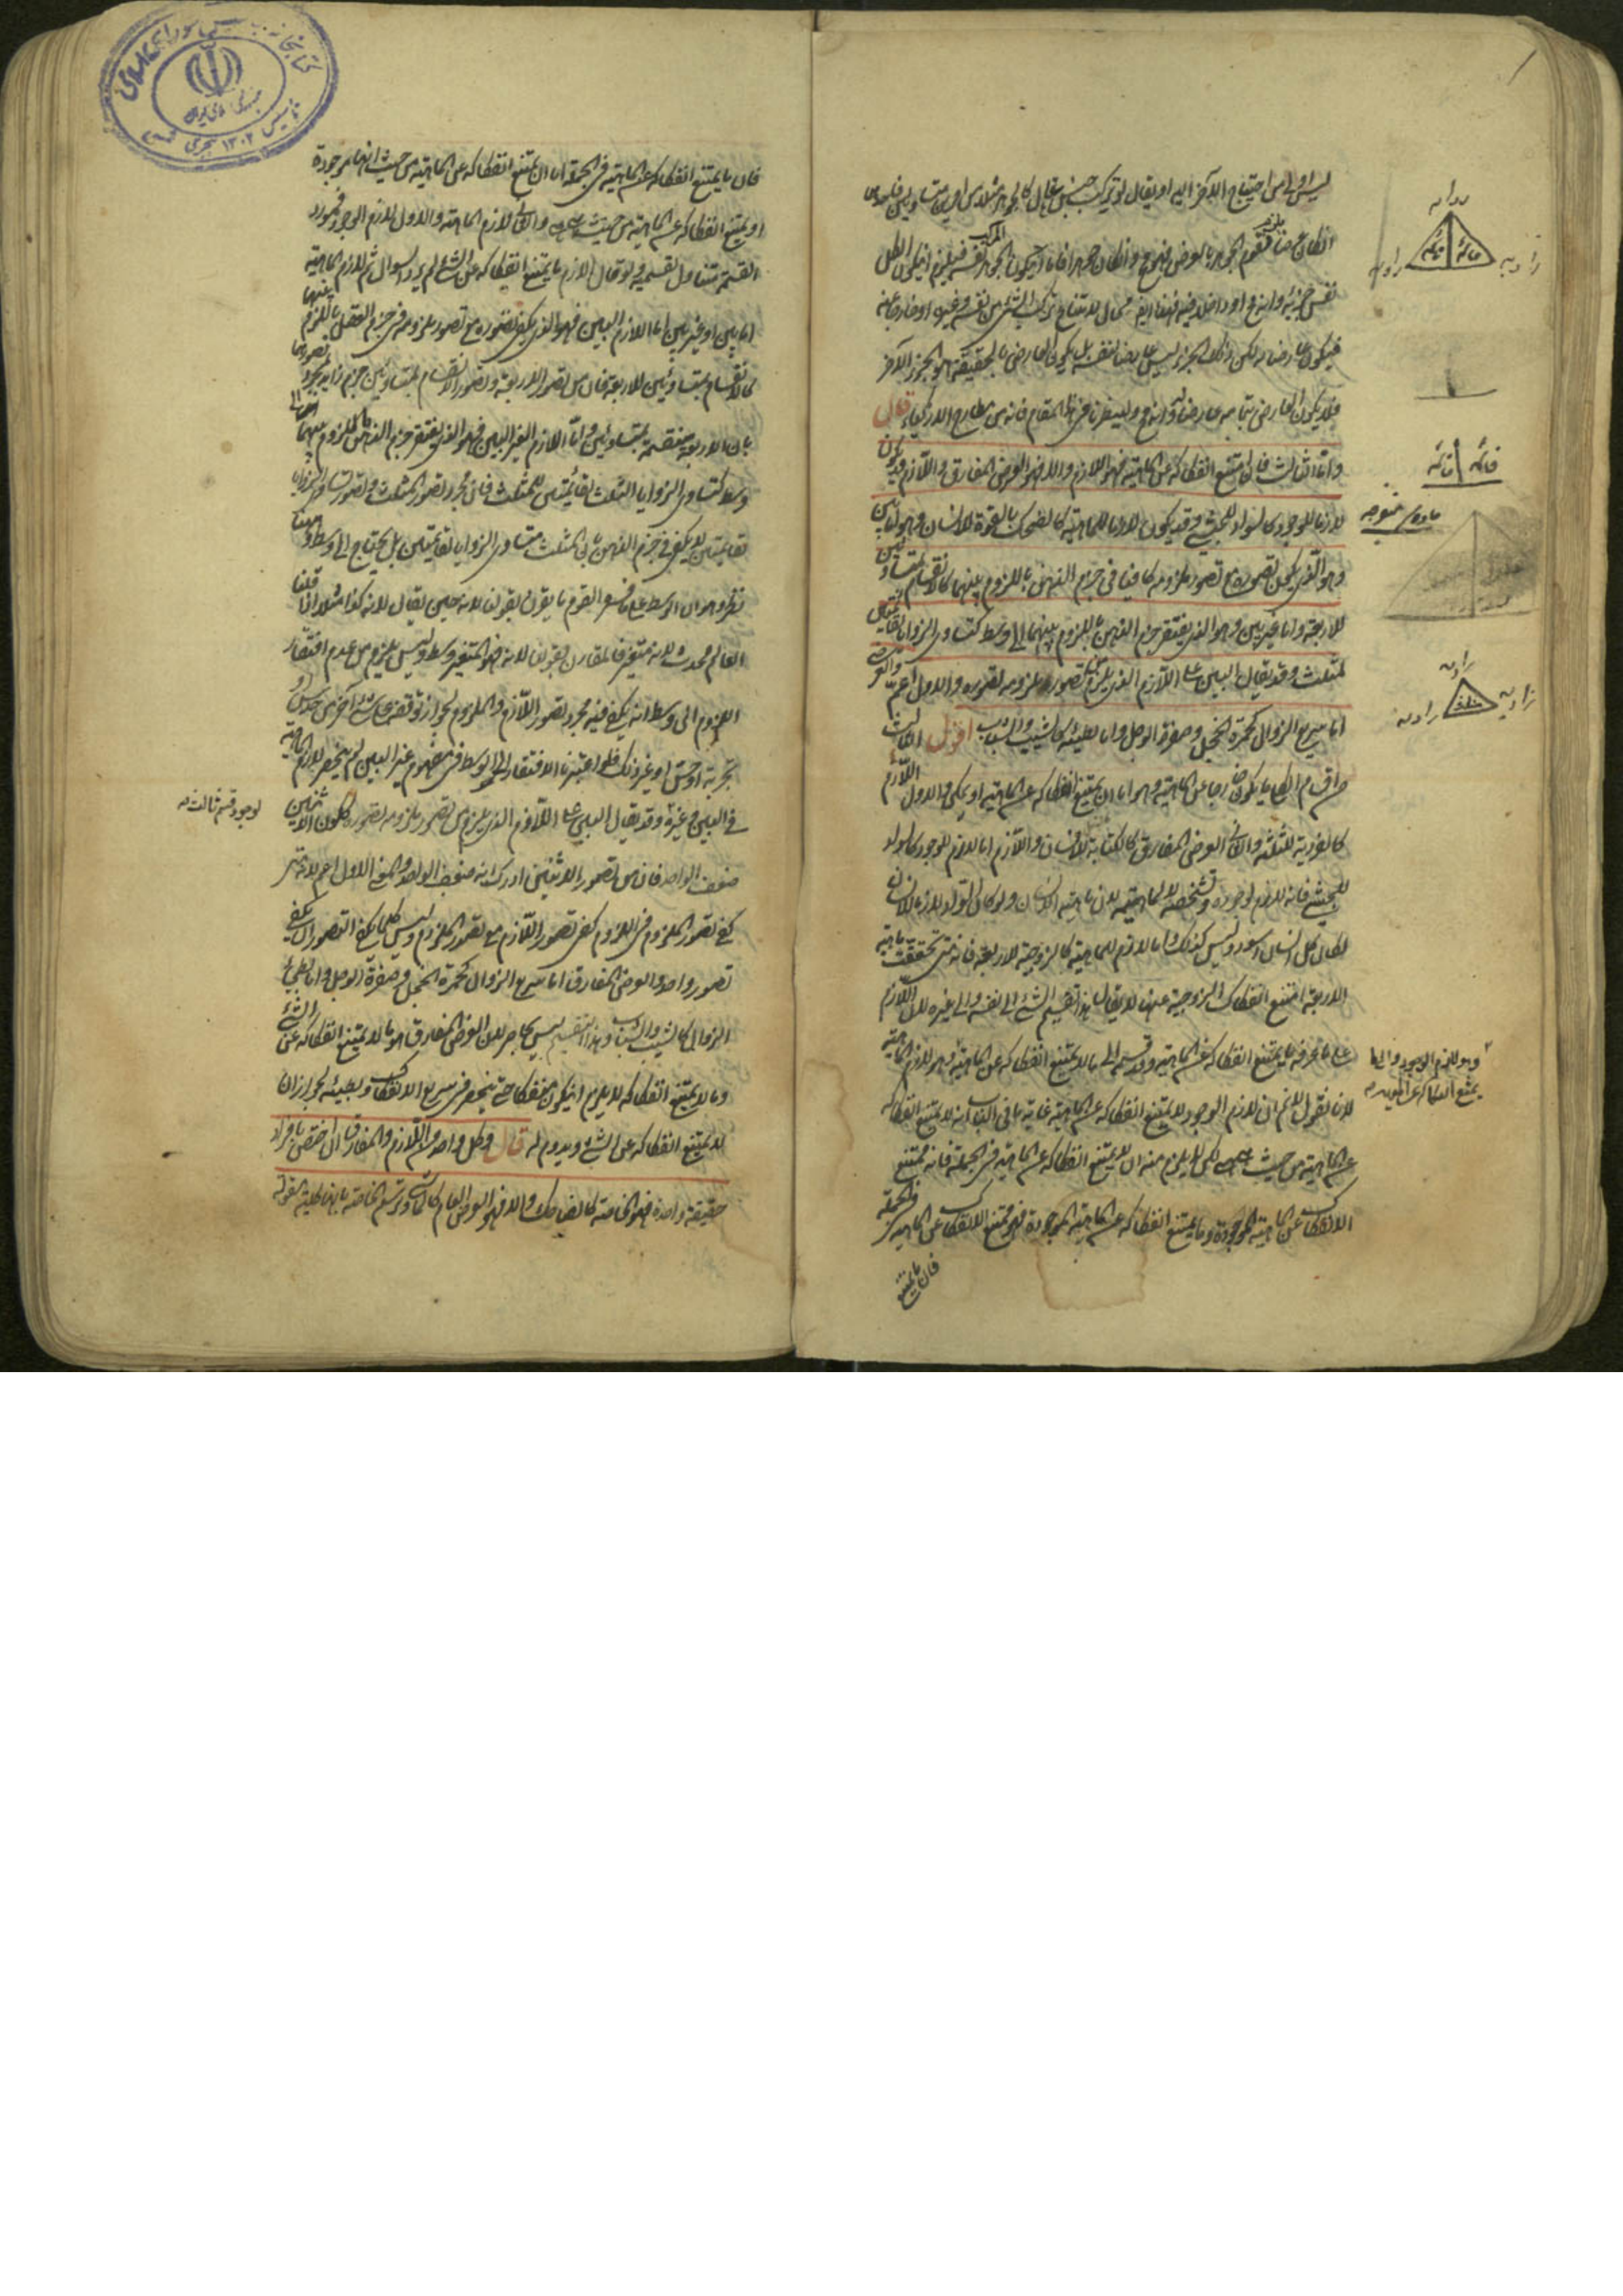 ليس اولى من احتياج الآخر اليه او يقال لو تركب جنس عال كالجوهر مثلا من امرين متساويين فاحدهما
ان كان عرضا يلزم تقوم الجوهر بالعرض وهو مح وان كان جوهرا فاما ان يكون الجوهر نفسه فيلزم ان يكون الكل
نفس جزئه وانه مح او داخلا فيه وهو ايضا محال لامتناع تركب الشئ من نفسه وغيره او خارجا عنه
فيكون عارضا له لكن ذلك الجزء ليس عارضا لنفسه بل يكون العارض بالحقيقة هو الجزء الآخر
فلا يكون العارض بتمامه عارضا وانه مح ولينظر فى هذا المقام فانه من مطارح الاذكياء قال
واما الثالث فان امتنع انفكاكه عن الماهية فهو اللازم والا فهو العرض المفارق واللازم قد يكون
لازما للوجود كالسواد للحبشى وقد يكون لازما للماهية كالضحك بالقوة للانسان وهو اما بين
وهو الذى يكون تصوره مع تصور ملزومه كافيا فى جزم الذهن باللزوم بينهما كالانقسام بمتساويين
للاربعة واما غير بين وهو الذى يفتقر جزم الذهن باللزوم بينهما الى وسط كتساوى الزوايا الثلث لقائمتين
للمثلث وقد يقال البين على اللازم الذى يلزم من تصور ملزومه تصوره والاول اعم والعرض
اما سريع الزوال كحمرة الخجل وصفرة الوجل واما بطيئه كالشيب والشباب اقول الثالث
من اقسام الكلى ما يكون خارجا عن الماهية وهو اما ان يمتنع انفكاكه عن الماهية او يمكن والاول اللازم
كالفردية للثلثة والثانى العرض المفارق كالكتابة للانسان واللازم اما لازم للوجود كالسواد
للحبشى فانه لازم لوجوده وتشخصه لا لماهيته لان ماهيته الانسان ولو كان السواد لازما للانسان
لكان كل انسان اسود وليس كذلك واما لازم للماهية كالزوجية للاربعة فانه متى تحققت ماهية
الاربعة امتنع انفكاك الزوجية عنها لا يقال هذا تقسيم الشئ الى نفسه والى غيره لان اللازم
على ما عرفه ما يمتنع انفكاكه عن الماهية وقد قسمه الى ما لا يمتنع انفكاكه عن الماهية وهو لازم الماهية
لانا نقول لا نم ان لازم الوجود لا يمتنع انفكاكه عن الماهية غاية ما فى الباب انه لا يمتنع انفكاكه
عن الماهية من حيث هى هى لكن لا يلزم منه ان لا يمتنع انفكاكه عن الماهية فى الجملة فانه ممتنع
الانفكاك عن الماهية الموجودة وما يمتنع انفكاكه عن الماهية الموجودة فهو ممتنع الانفكاك عن الماهية فى الجملة
فان ما يمتنع
زاويه
زاويه قائمه قائمه زاويه
قائمه قائمه
حاده منفرجه
زاويه
زاويه مثلث زاويه
وهو لازم الوجود والى ما
يمتنع انفكاكه عن الماهية
فان ما يمتنع انفكاكه عن الماهية فى الجملة اما ان يمتنع انفكاكه عن الماهية من حيث انها موجودة
او يمتنع انفكاكه عن الماهية من حيث هى هى والثانى لازم الماهية والاول لازم الوجود فمورد
القسمة متناول لقسميه ولو قال اللازم ما يمتنع انفكاكه عن الشئ لم يرد السوال ثم لازم الماهية
اما بين او غير بين اما اللازم البين فهو الذى يكفى تصوره مع تصور ملزومه فى جزم العقل باللزوم بينهما
كالانقسام بمتساويين للاربعة فان من تصور الاربعة وتصور الانقسام بمتساويين جزم بمجرد تصورهما
بان الاربعة منقسمة بمتساويين واما اللازم الغير البين فهو الذى يفتقر جزم الذهن باللزوم بينهما الى
وسط كتساوى الزوايا الثلث لقائمتين للمثلث فان مجرد تصور المثلث وتصور تساوى الزوايا
لقائمتين لا يكفى فى جزم الذهن بان المثلث متساوى الزوايا لقائمتين بل يحتاج الى وسط وههنا
نظر وهو ان الوسط على ما فسره القوم ما يقرن بقولنا لانه حين يقال لانه كذا مثلا اذا قلنا
العالم محدث لانه متغير فالمقارن لقولنا لانه وهو المتغير وسط وليس يلزم من عدم افتقار
اللزوم الى وسط انه يكفى فيه مجرد تصور اللازم والملزوم لجواز توقفه على شئ آخر من حدس او
تجربة او حس او غير ذلك فلو اعتبرنا الافتقار الى الوسط فى مفهوم غير البين لم ينحصر لازم الماهية
فى البين وغيره وقد يقال البين على اللازم الذى يلزم من تصور ملزومه تصوره ككون الاثنين
ضعف الواحد فان من تصور الاثنين ادرك انه ضعف الواحد والمعنى الاول اعم لانه متى
كفى تصور الملزوم فى اللزوم كفى تصور اللازم مع تصور الملزوم وليس كلما يكفى التصوران يكفى
تصور واحد والعرض المفارق اما سريع الزوال كحمرة الخجل وصفرة الوجل واما بطيئ
الزوال كالشيب والشباب وهذا التقسيم ليس بحاصر لان العرض المفارق هو ما لا يمتنع انفكاكه عن الشئ
وما لا يمتنع انفكاكه لا يلزم ان يكون منفكا حتى ينحصر فى سريع الانفكاك وبطيئه لجواز ان
لا يمتنع انفكاكه عن الشئ ويدوم له قال وكل واحد من اللازم والمفارق ان اختص بافراد
حقيقة واحدة فهو الخاصة كالضاحك والا فهو العرض العام كالماشى وترسم الخاصة بانها كلية مقولة
لوجود قسم ثالث